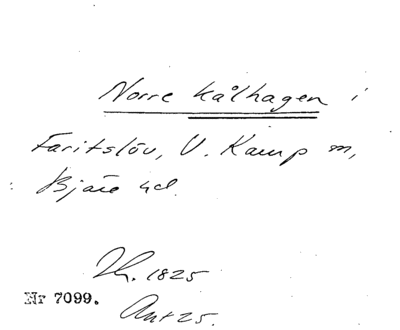 Norre kålhagen i
Faritslöv, V. Karup sn,
Bjäre hd.
Lh. 1825
Nr 7099.
Ant 25.